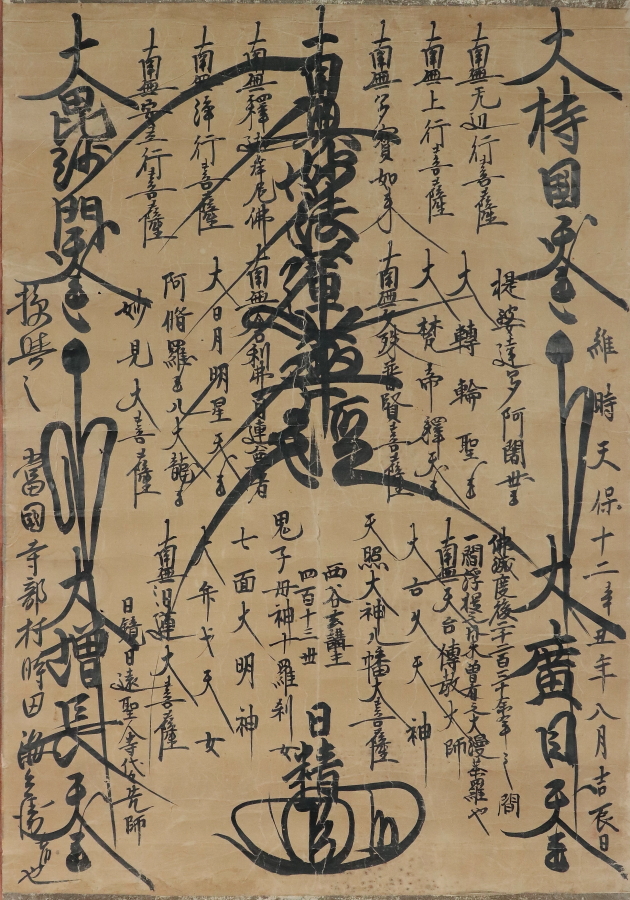 大持国天王
維時天保十二辛丑年八月吉辰日
大廣目天王
南無无辺行菩薩
南無上行菩薩
南無多寳如来
南無妙法蓮華経
南無釋迦牟尼佛
南無浄行菩薩
南無安立行菩薩
大毘沙門天王
提婆達多 阿闍世王
大轉輪聖王
大梵帝釋天王
南無文殊普賢菩薩
南無舎利佛目連尊者
大日月明星天王
阿脩羅王八大龍王
妙見大菩薩
授與之
佛滅度後二千二百三十余年之間
一閻浮提之内未曽有之大漫荼羅也
南無天台傳教大師
大古久天神
天照大神八幡大菩薩
西谷玄講主
四百十三世
鬼子母神十羅刹女
七面大明神
大弁才天女
南無日蓮大菩薩
日鏡日遠聖人等代々先師
日精
大増長天王
當國寺部村